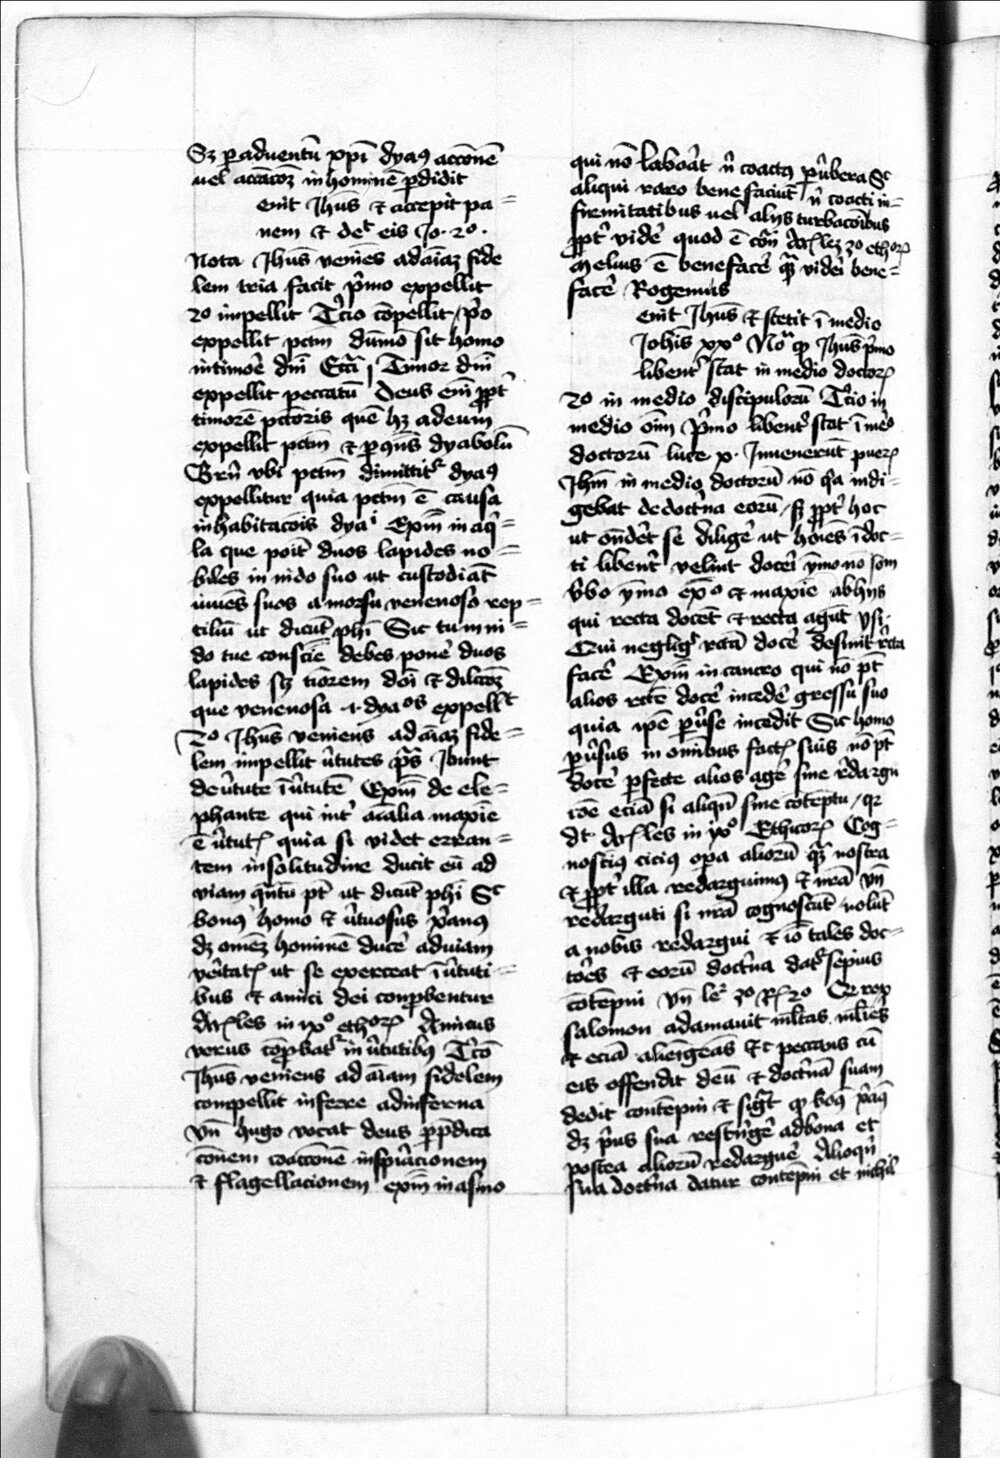 Sz per adventū xpī dyaꝰ accōnē
vel accacōꝫ in hominē perdidit
enit Jhūs et accepit pa=
nem et det eis Jo. 20.
Nota Jhūs veniēs ad aīaꝫ fide
lem tria facit pͥmo expellit
2o impellit Tcͥio cōpellit / pͥo
expellit pctm̄ dūmō sit homo
in timōe dnī Eccͥi j Timor dnī
expellit peccatū Deus em̄ ꝓpt
timorē pctōris quē hꝫ ad eum
expellit pctm̄ et per ꝯn̄s dyabolū
Grn̄ vbi pctm̄ dimittitͬ dyaꝰ
expellitur quia pctm̄ ē causa
inhabitacōis dyaⁱ Exm̄ in aqͥ=
la que poīt duos lapides no=
biles in nido suo ut custodiāt
iuuēs suos a morsu venenoso rep=
tiliū ut dicūt phī Sic tu in ni=
do tue consciē debes ponē duos
lapides sꝫ tīorem dei et dilcōꝫ
que venenosa .i. dyaos expellt
2o Jhūs veniens ad aīaꝫ fide=
lem impellit v̄tutes pͣs Ibunt
de v̄tute ī v̄tutē Exm̄ de ele=
phante qui intͬ aīalia maxīe
ē v̄tutꝭ quia si videt erran=
tem in solitudine ducit eū ad
viam qn̄tū pt ut dicūt phī Sc
bonꝰ homo et v̄tuosus xͥanꝰ
dꝫ omēꝫ hominē ducē ad viam
veritatꝭ ut se exerceat ī v̄tuti=
bus et amici dei comprobentur
Arles in ixo ethorꝫ Amicus
verus cōprobatͬ in v̄tutibꝰ Tcͥō
Jhūs veniens ad aīam fidelem
compellit inferre ad inferna
Vn̄ hugo vocat deus ꝑ p̄dica
cōnem coaccōnē inspiracionem
et flagellacionem exm̄ in asino
qui nō laborat n̄ coactꝰ Sc
aliqui raro bene faciūt n̄ coacti in=
firmitatibus vel alijs turbacōibus
ꝓpt vidē quod ē cōn̄ Arlez 2o ethorꝫ
melius ē benefacē qͣm viderī bene=
facē Rogemus
enit Jhūs et stetit ī medio
Johīs xxo Noͣ qͻ Jhūs pͥmo
libentͬ stat in medio doctorꝫ
2o in medio discipulorū Tcͥio in
medio oīm Pͥmo libentͬ stat ī mēo
doctorū luce 2. Invenerūt puerꝫ
Jhm̄ in medio doctorū nō qͥa indi=
gebat de doctͥna eorū / sꝫ ꝓpt hoc
ut ondēt se diligē ut hōies ī doc=
ti libent velint docerī ymo nō som
vͥbo ymo exo et maxīe ab hijs
qui recta docēt et recta agūt
Qui negligͥt rctā docē desinit rcta
facē Exm̄ in cancro qui nō pt
alios rectē docē incedē gressu suo
quia ipē pūse incedit Sic homo
pūsus in omībus factꝭ suis nō pt
docē perfecte alios agē sine rͥdargu
cōe eciā si aliqn̄ sine cōtēptu / qͬ
dt Arles in ixo Ethicorꝫ Cog=
noscimꝰ cicius opa aliorū qͣm nostra
et ꝓpt illa redarguimꝰ et nrā vn̄
redarguti si nrā cognoscūt nolūt
a nobis redargui et iō tales doc=
tōes et eorū doctͥna datͬ sepius
cōtēpni Vn̄ leͬ 3o Rꝭ 2o Qr rex
salomon adamavit mltas mliēs
et eciā alienigēas Et peccans cū
eis offendit deū et doctͥnā suam
dedit contēpni et sigͣt qͻ bonꝰ xͥanꝰ
dꝫ pͥus sua restringē ad bona et
postea aliorū redarguē Alioqn̄
sua doctͥna datur contēpni et nichil